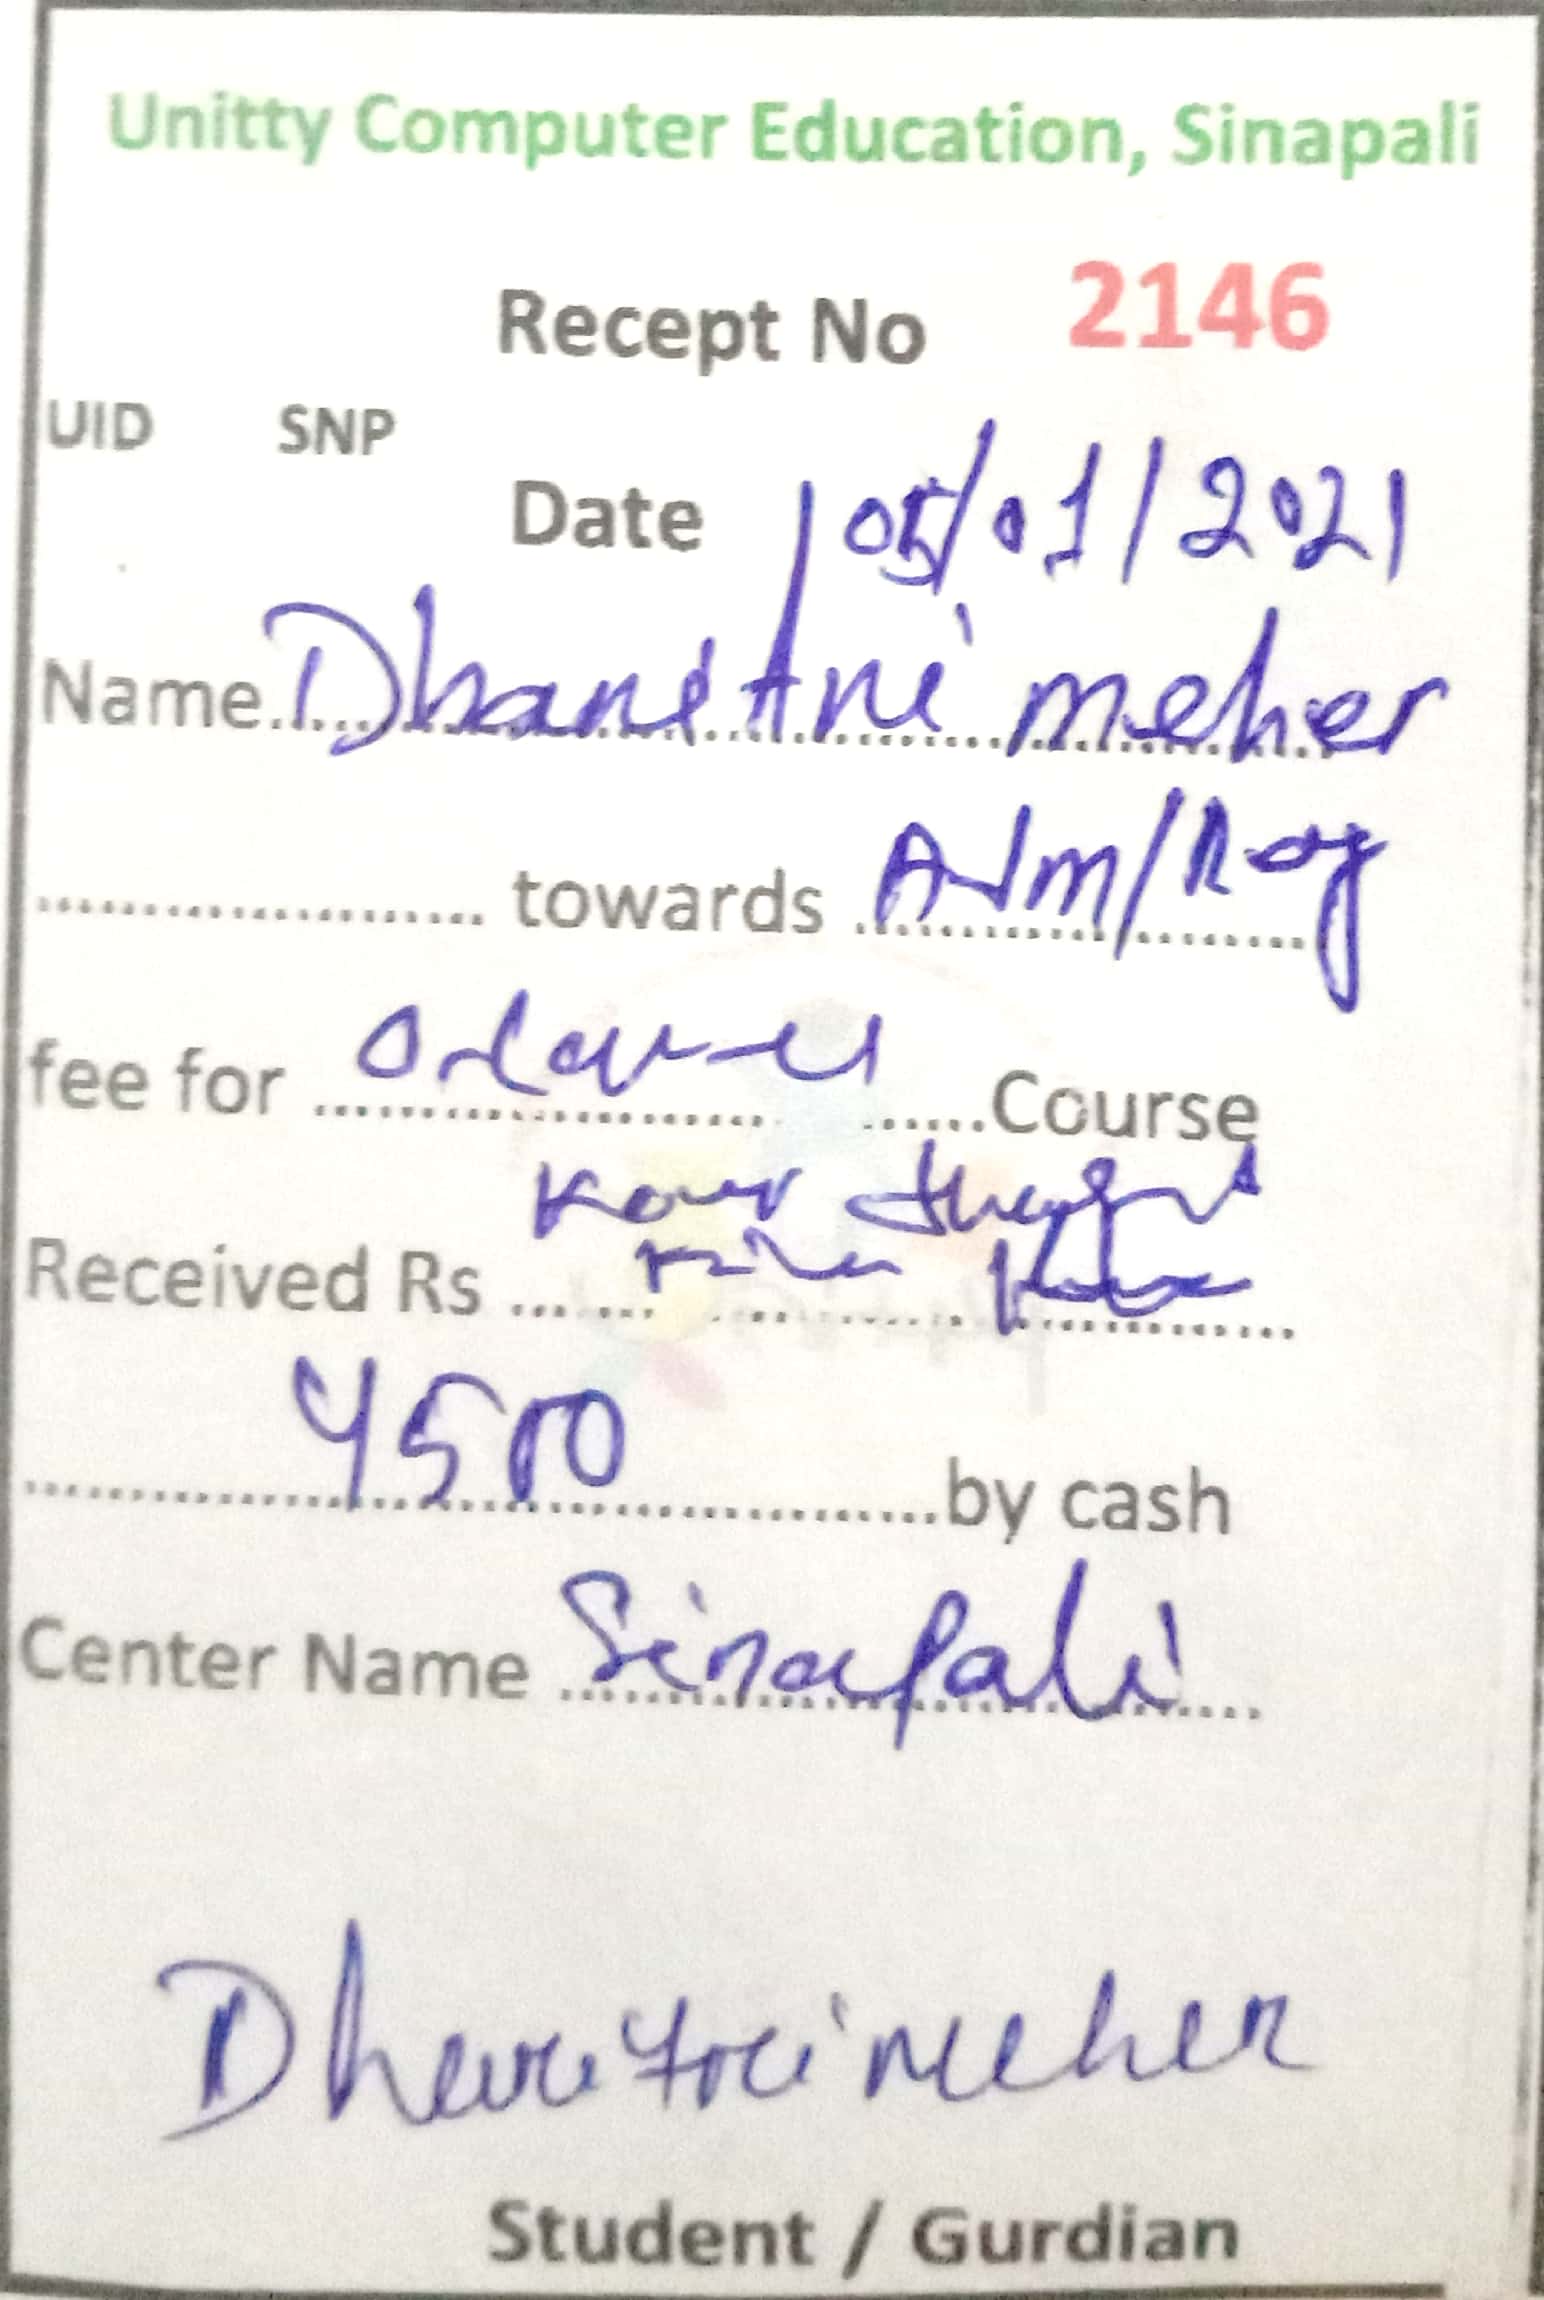 Unitty Computer Education, Sinapali
Recept No 2146
UID SNP
Date 05/01/2021
Name. Dharitri meher
towards Adm/Reg
fee for Course
Four thousand
Received Rs
4500
by cash
Center Name Sinapali
Dharitri meher
Student / Gurdian